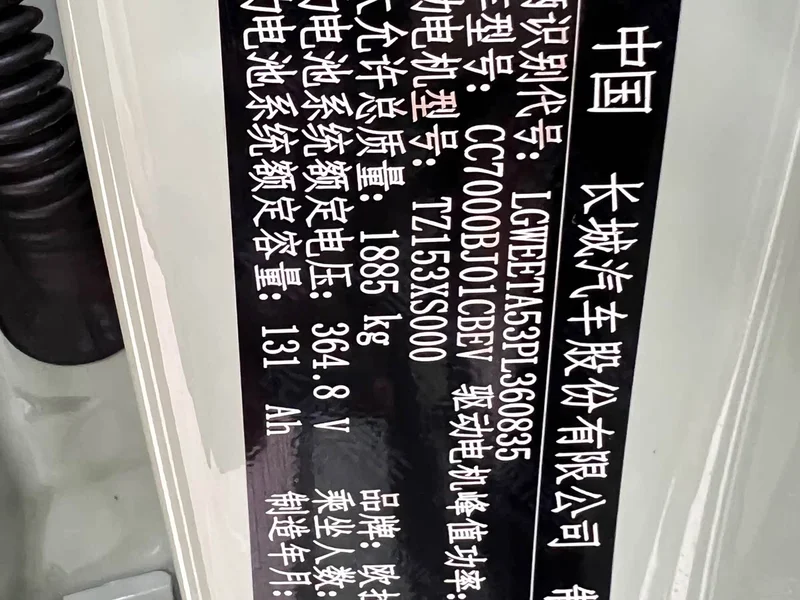 中国 长城汽车股份有限公司
识别代号: LGWEETA53PL360835
型号: CC7000BJ01CBEV 驱动电机峰值功率:
电机型号: TZ153XS000
允许总质量: 1885 kg 品牌: 欧拉
电池系统额定电压: 364.8 V 乘坐人数:
电池系统额定容量: 131 Ah 制造年月: